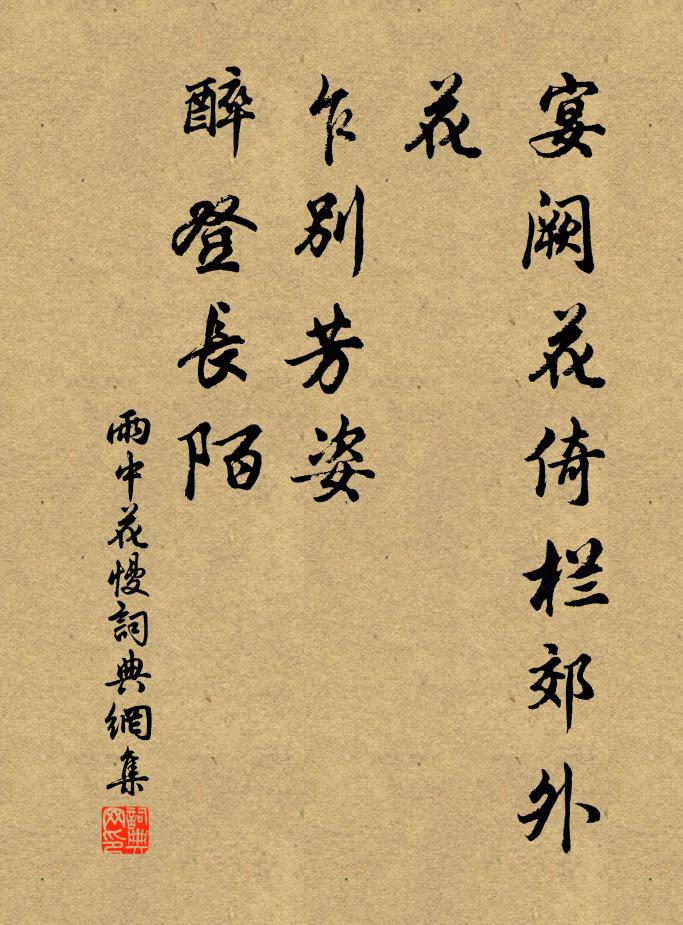 宴阙花倚栏郊外
花
乍别芳姿
醉登長陌
雨中花慢詞典網集
詞典网印